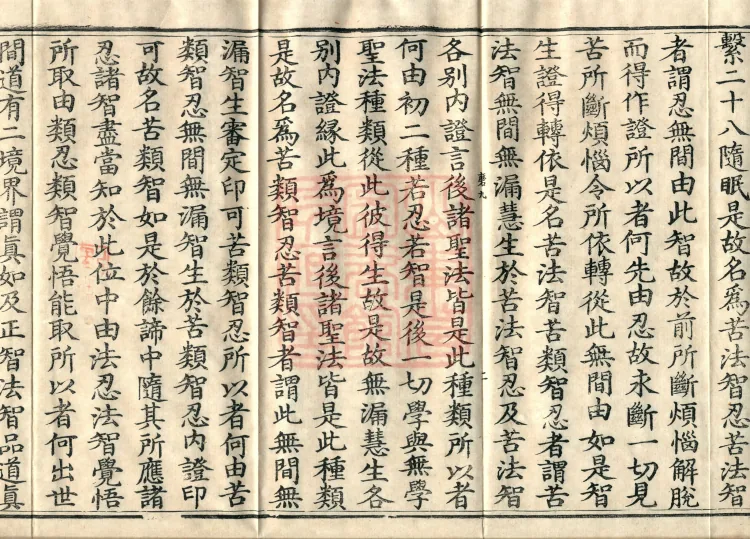 繫二十八隨眠是故名爲苦法智忍苦法智
者謂忍無間由此智故於前所斷煩惱解脫
而得作證所以者何先由忍故永斷一切見
苦所斷煩惱令所依轉從此無間由如是智
生證得轉依是名苦法智苦類智忍者謂苦
法智無間無漏慧生於苦法智忍及苦法智
各別內證言後諸聖法皆是此種類所以者
何由初二種若忍若智是後一切學與無學
聖法種類從此彼得生故是故無漏慧生各
別內證緣此爲境言後諸聖法皆是此種類
是故名爲苦類智忍苦類智者謂此無間無
漏智生審定印可苦類智忍所以者何由苦
類智忍無間無漏智生於苦類智忍內證印
可故名苦類智如是於餘諦中隨其所應諸
忍諸智盡當知於此位中由法忍法智覺悟
所取由類忍類智覺悟能取所以者何出世
間道有二境界謂眞如及正智法智品道眞